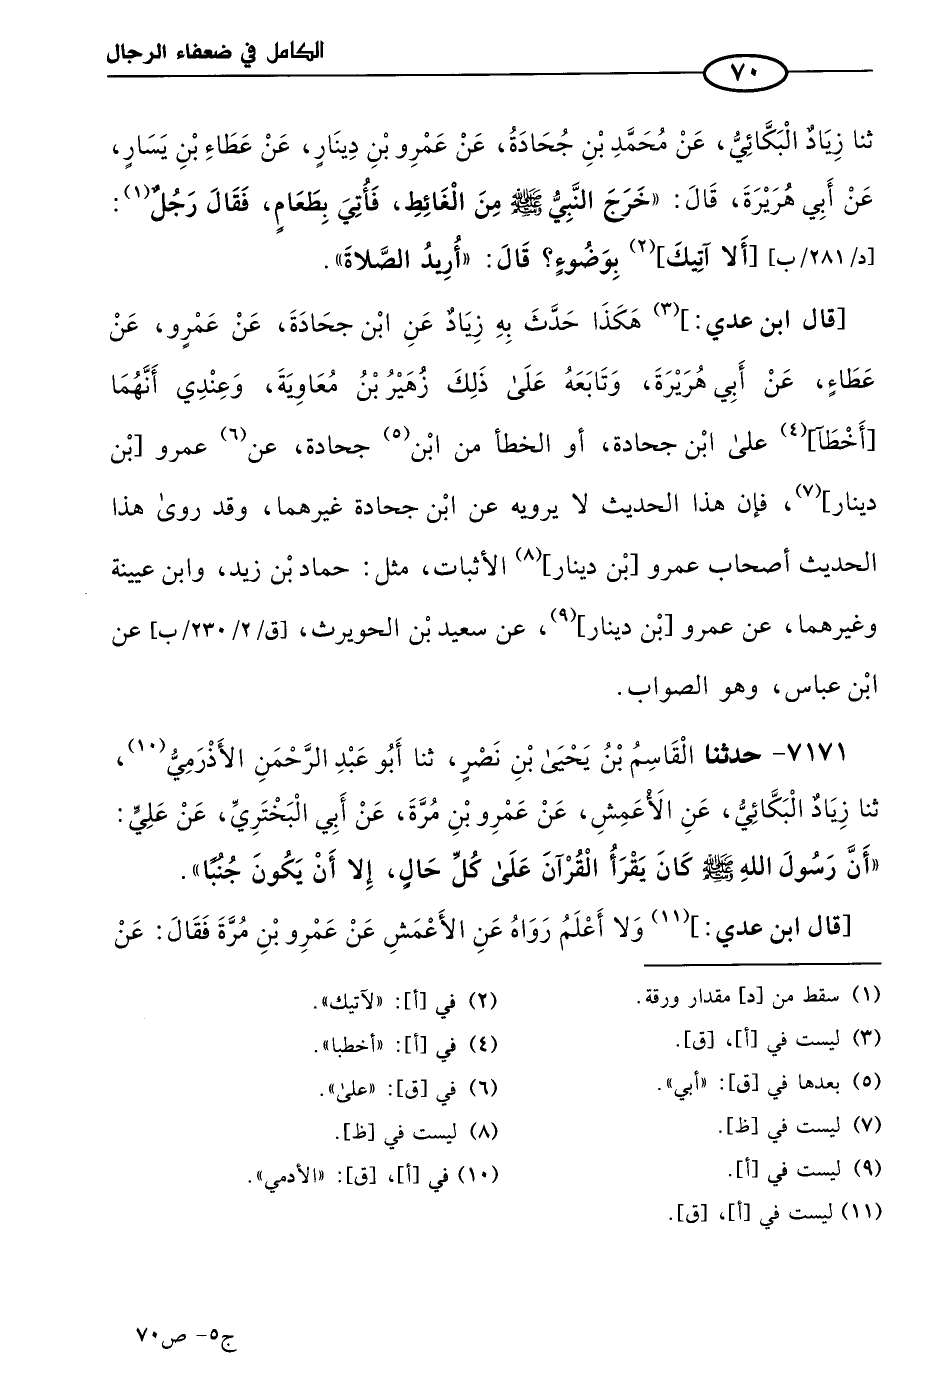 الكامل في ضعفاء الرجال
٧٠
ثنا زِيَادٌ الْبَكَّائِيُّ، عَنْ مُحَمَّدِ بْنِ جُحَادَةُ، عَنْ عَمْرِو بْنِ دِينَارٍ، عَنْ عَطَاءِ بْنِ يَسَارٍ،
عَنْ أَبِي هُرَيْرَةَ، قَالَ: «خَرَجَ النَّبِيُّ ﷺ مِنَ الْغَائِطِ، فَأُتِيَ بِطَعَامٍ، فَقَالَ رَجُلٌ(١):
[د/ ٢٨١/ ب] [أَلا آتِيكَ](٢) بِوَضُوءٍ؟ قَالَ: «أُرِيدُ الصَّلاةَ».
[قال ابن عدي:](٣) هَكَذَا حَدَّثَ بِهِ زِيَادٌ عَنِ ابْنِ جحَادَةَ، عَنْ عَمْرٍو، عَنْ
عَطَاءٍ، عَنْ أَبِي هُرَيْرَةَ، وَتَابَعَهُ عَلَىٰ ذَلِكَ زُهَيْرُ بْنُ مُعَاوِيَةَ، وَعِنْدِي أَنَّهُمَا
[أَخْطَآ](٤) علىٰ ابْن جحادة، أو الخطأ من ابْن(٥) جحادة، عن(٦) عمرو [بْن
دينار](٧)، فإن هذا الحديث لا يرويه عن ابْن جحادة غيرهما، وقد روىٰ هذا
الحديث أصحاب عمرو [بْن دينار](٨) الأثبات، مثل: حماد بْن زيد، وابن عيينة
وغيرهما، عن عمرو [بْن دينار](٩)، عن سعيد بْن الحويرث، [ق/ ٢/ ٢٣٠/ ب] عن
ابْن عباس، وهو الصواب.
٧١٧١- حدثنا الْقَاسِمُ بْنُ يَحْيَىٰ بْنِ نَصْرٍ، ثنا أَبُو عَبْدِ الرَّحْمَنِ الأَذْرَمِيُّ(١٠)،
ثنا زِيَادٌ الْبَكَّائِيُّ، عَنِ الأَعْمِشِ، عَنْ عَمْرِو بْنِ مُرَّةَ، عَنْ أَبِي الْبَخْتَرِيِّ، عَنْ عَلِيٍّ:
«أَنَّ رَسُولَ اللهِ ﷺ كَانَ يَقْرَأُ الْقُرْآنَ عَلَىٰ كُلِّ حَالٍ، إِلا أَنْ يَكُونَ جُنُبًا».
[قال ابن عدي:](١١) وَلا أَعْلَمُ رَوَاهُ عَنِ الأَعْمَشِ عَنْ عَمْرِو بْنِ مُرَّةَ فَقَالَ: عَنْ
(١) سقط من [د] مقدار ورقة.
(٢) في [أ]: «لآتيك».
(٣) ليست في [أ]، [ق].
(٤) في [أ]: «أخطبا».
(٥) بعدها في [ق]: «أبي».
(٦) في [ق]: «علىٰ».
(٧) ليست في [ظ].
(٨) ليست في [ظ].
(٩) ليست في [أ].
(١٠) في [أ]، [ق]: «الأدمي».
(١١) ليست في [أ]، [ق].
ج٥- ص٧٠